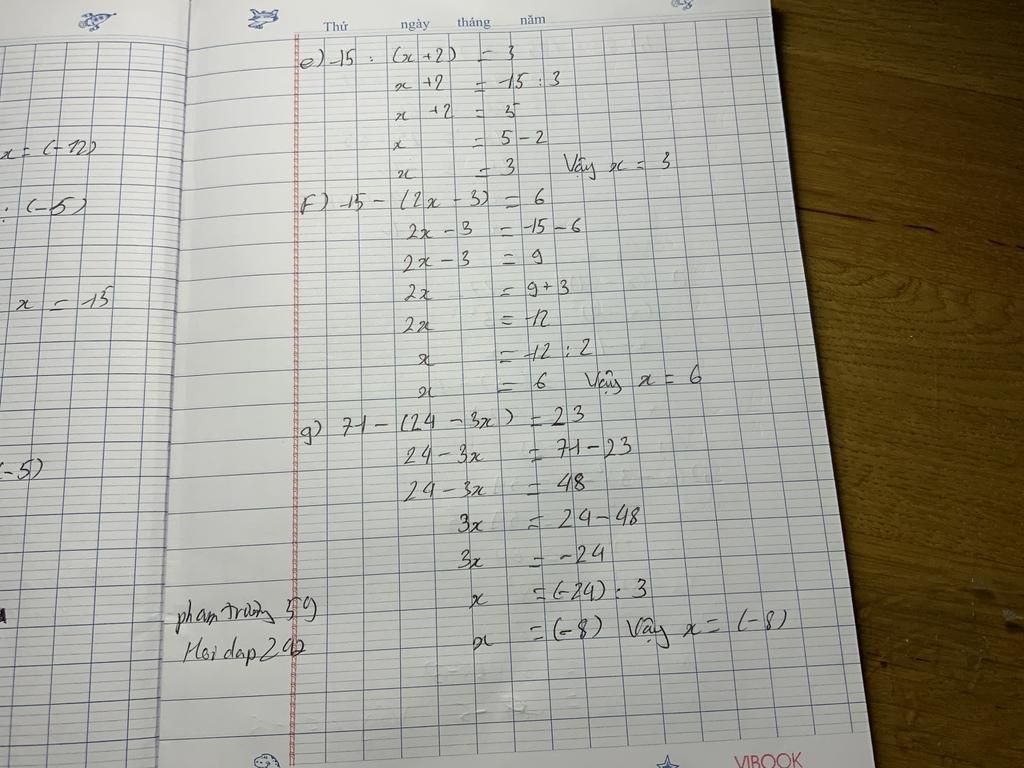 x = (-12)
: (-5)
x = 15
(-5)
Thứ ngày tháng năm
e) 15 : (x+2) = 3
x +2 = 15 : 3
x +2 = 5
x = 5 - 2
x = 3 Vậy x = 3
f) 15 - (2x - 3) = 6
2x - 3 = 15 - 6
2x - 3 = 9
2x = 9 + 3
2x = 12
x = 12 : 2
x = 6 Vậy x = 6
g) 71 - (24 - 3x) = 23
24 - 3x = 71 - 23
24 - 3x = 48
3x = 24 - 48
3x = -24
x = (-24) : 3
x = (-8) Vậy x = (-8)
59
Hoidap
VIBOOK